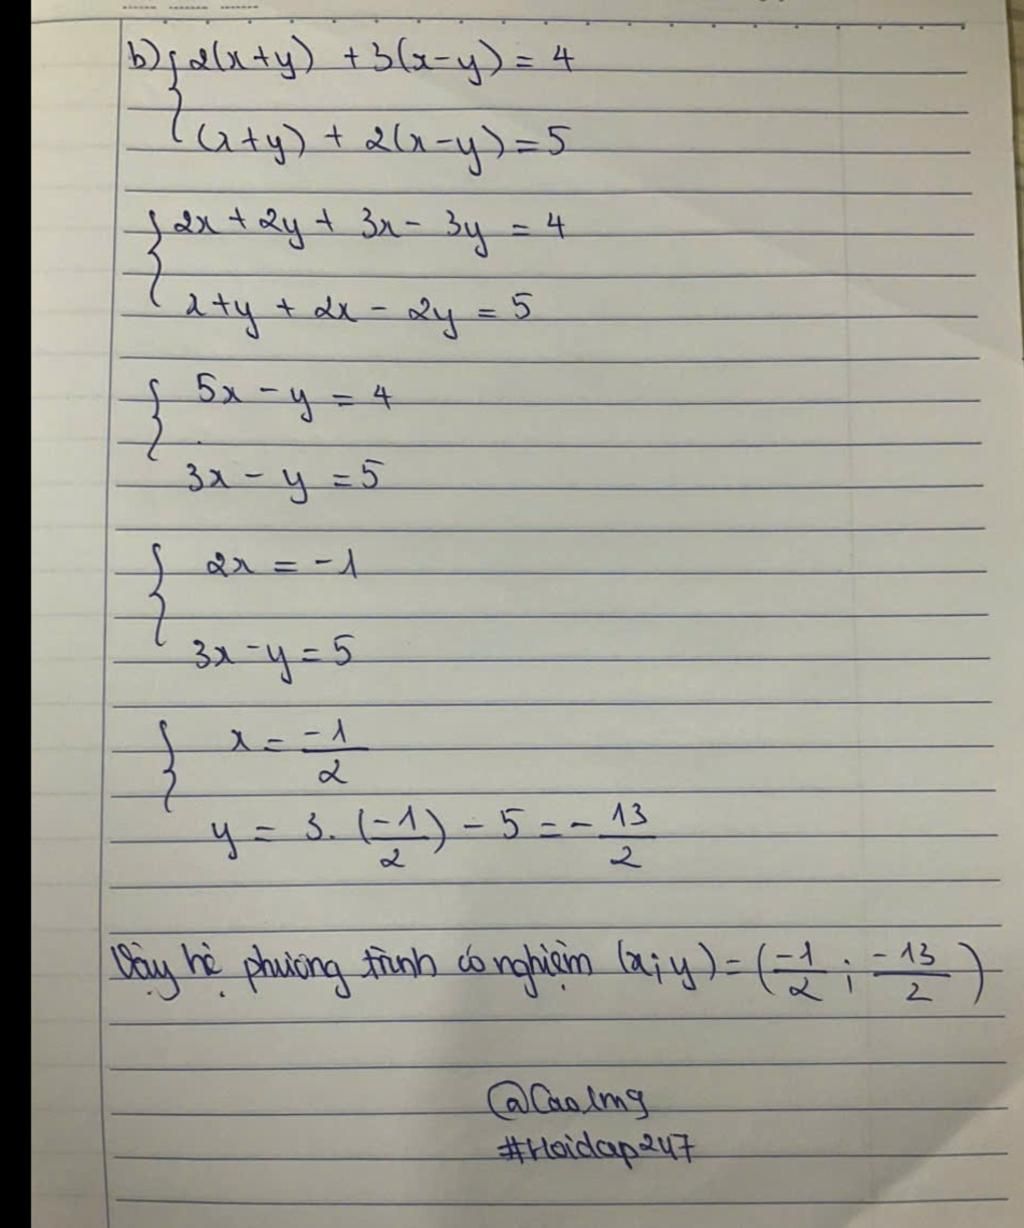 b) { 2(x+y) + 3(x-y) = 4
(x+y) + 2(x-y) = 5
{ 2x + 2y + 3x - 3y = 4
x+y + 2x - 2y = 5
{ 5x - y = 4
3x - y = 5
{ 2x = -1
3x - y = 5
{ x = -1/2
y = 3. (-1/2) - 5 = - 13/2
Vậy hệ phương trình có nghiệm (x;y) = (-1/2 ; -13/2)
@Caolmg
#Hoidap247